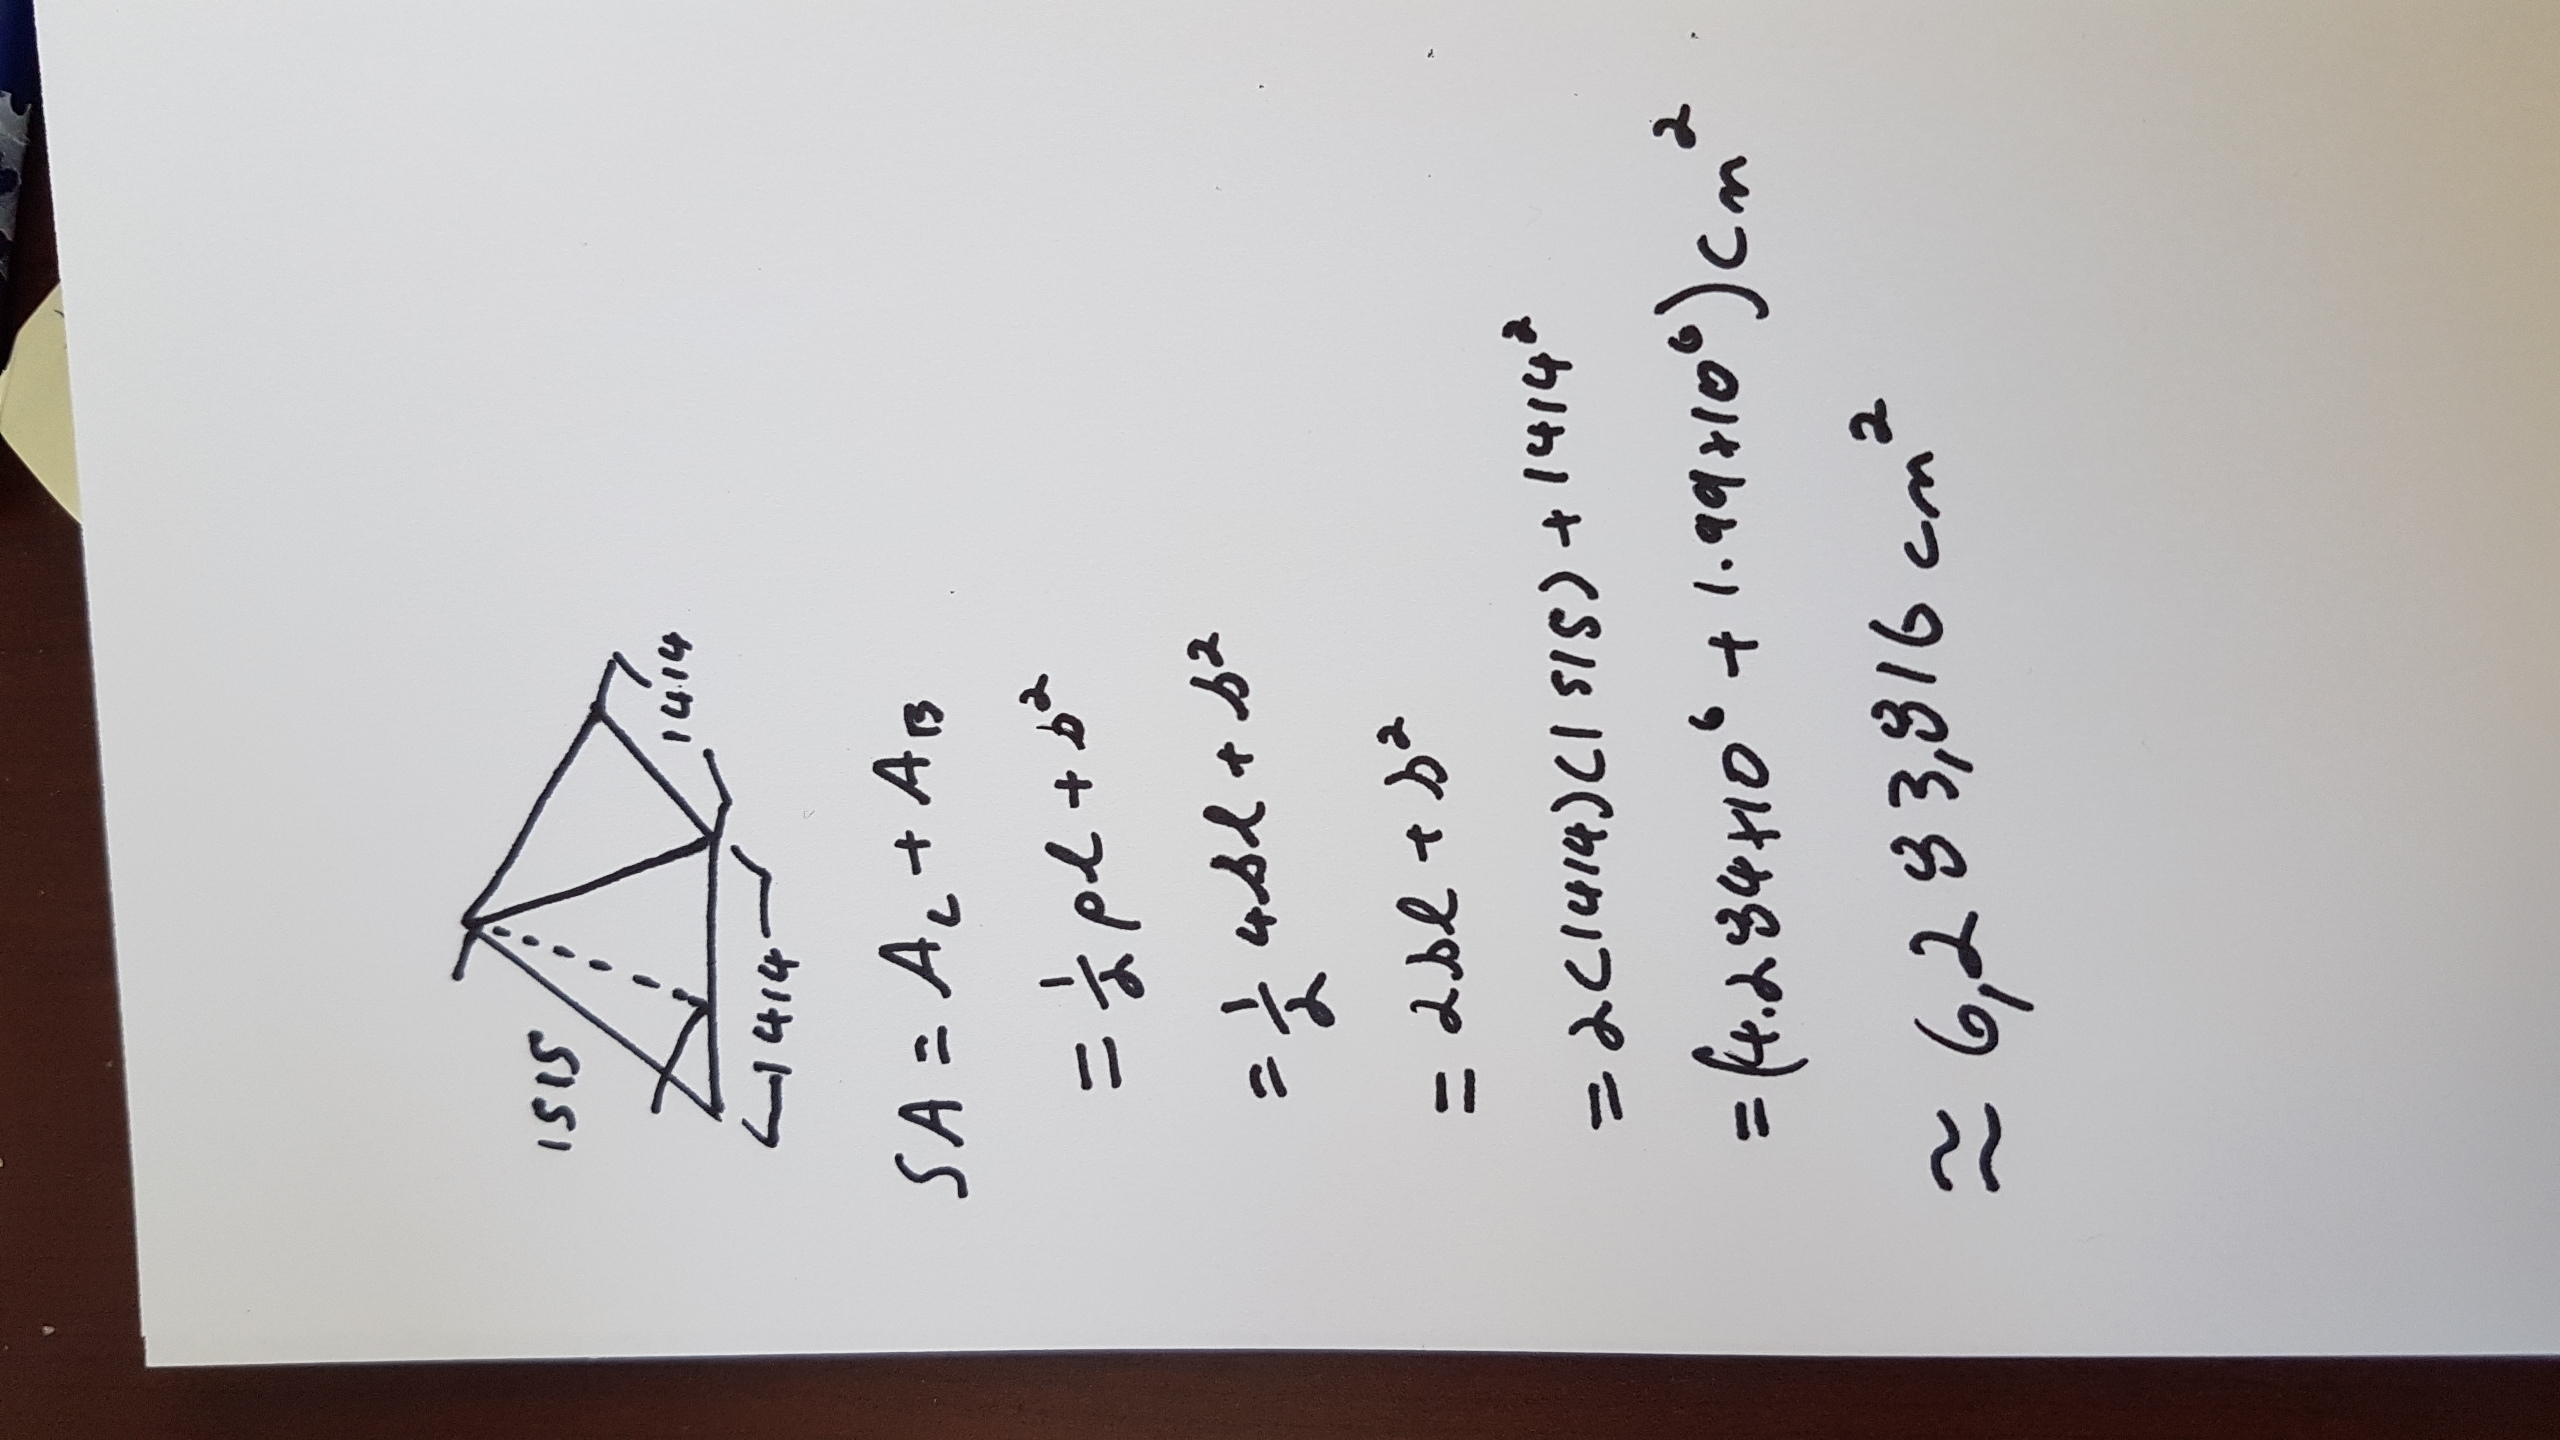 1515
1414
1414
SA = A_L + A_B
= 1/2 pl + b²
= 1/2 4bl + b²
= 2bl + b²
= 2(1414)(1515) + 1414²
= (4.234×10⁶ + 1.99×10⁶) cm²
≈ 6,233,316 cm²